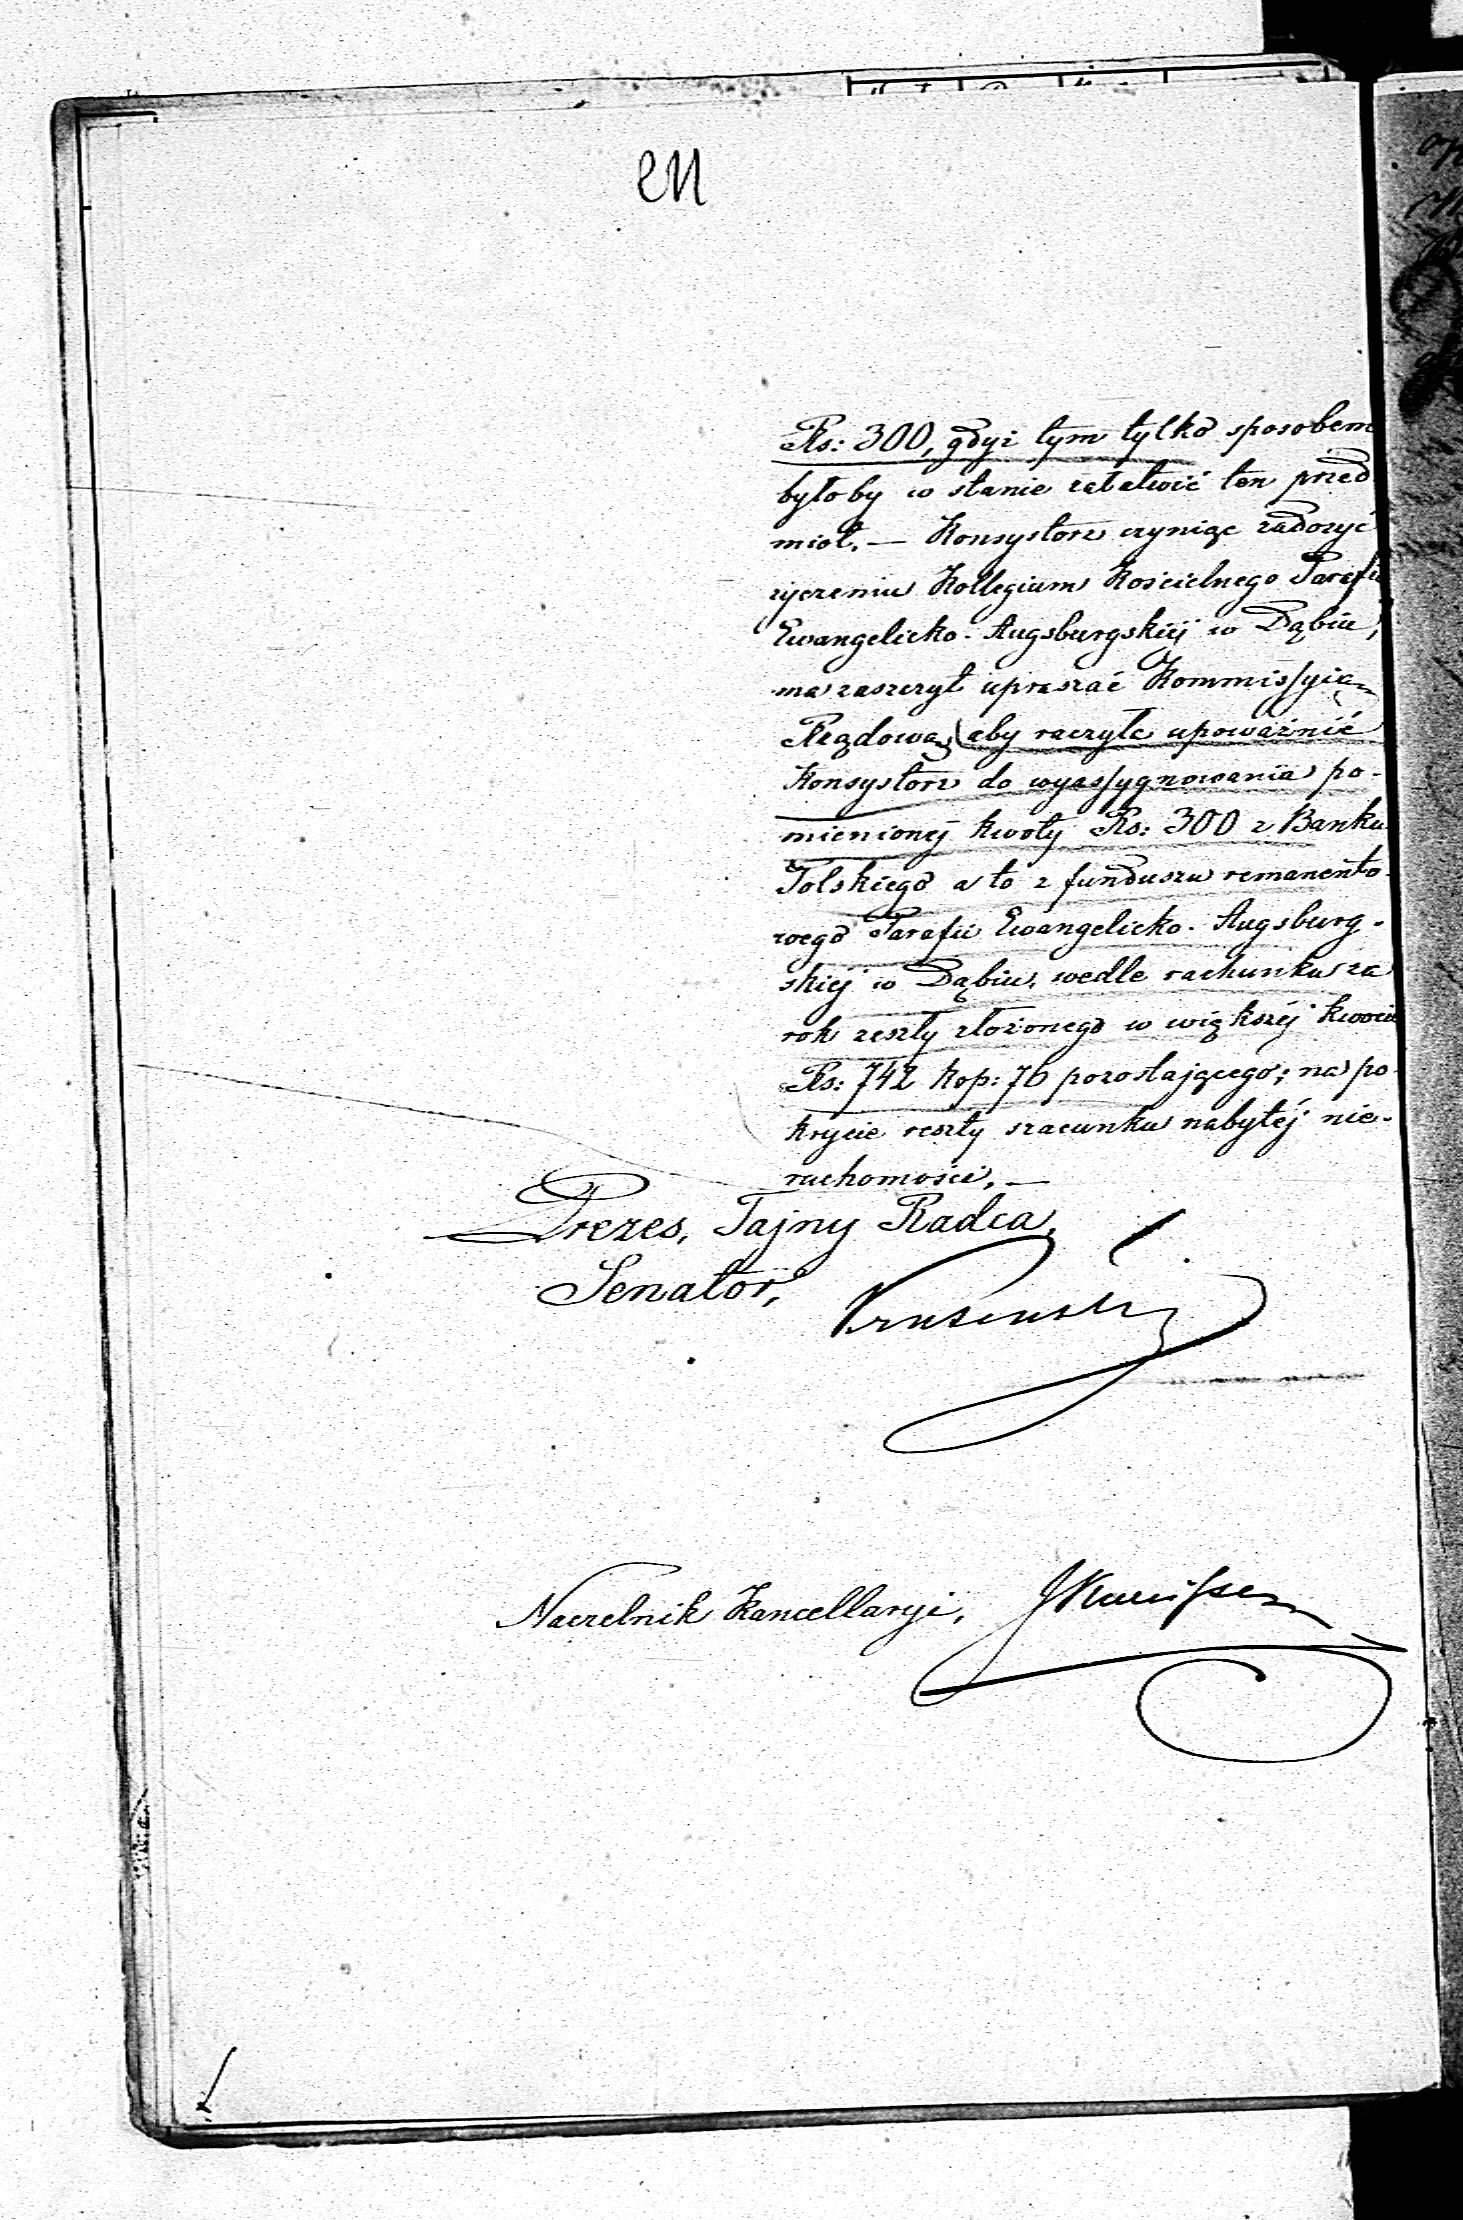 Rs: 300, gdyż tym tylko sposobem
byłoby w stanie załatwić ten przed
miot. — Konsystorz czyniąc zadosyć
życzeniu Kollegium Kościelnego Parafii
Ewangelicko-Augsburgskiéj w Dąbiu,
ma zaszczyt upraszać Kommissyią
Rządową, aby raczyła upoważnić
Konsystorz do wyassygnowania po-
mienionéj kwoty Rs: 300 z Banku
Polskiego a to z funduszu remanento-
wego Parafii Ewangelicko-Augsburg-
skiéj w Dąbiu, wedle rachunku za
rok zeszły złożonego w większéj kwocie
Rs: 742 kop: 76 pozostającego; na po-
krycie reszty szacunku nabytéj nie-
ruchomości. —
Prezes, Tajny Radca,
Senator,
Naczelnik Kancellaryi,